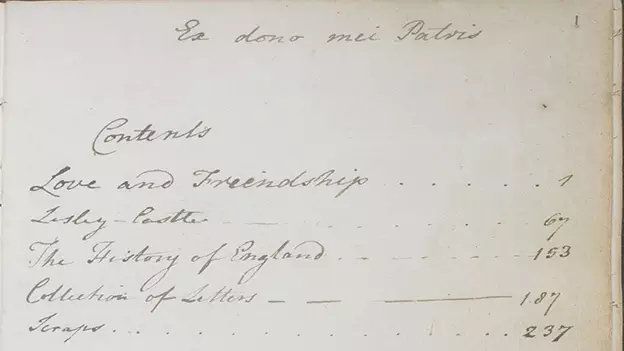 1
Ex dono mei Patris
Contents
Love and Freindship . . . . . . 1
Lesley-Castle — — . . . . . 67
The History of England . — . — . — . — 153
Collection of Letters — — — — 187
Scraps . . . . . . . . . . . . 237